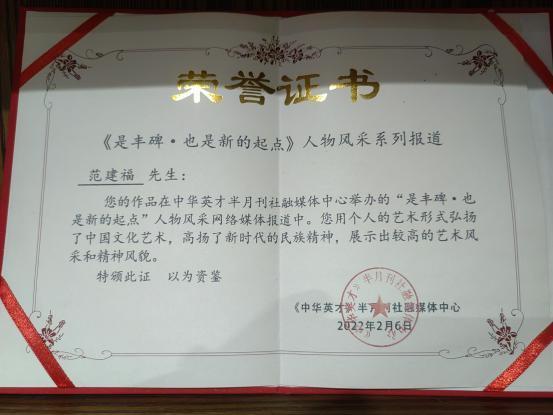 荣誉证书
《是丰碑·也是新的起点》人物风采系列报道
范建福 先生：
您的作品在中华英才半月刊社融媒体中心举办的“是丰碑·也
是新的起点”人物风采网络媒体报道中。您用个人的艺术形式弘扬
了中国文化艺术，高扬了新时代的民族精神，展示出较高的艺术风
采和精神风貌。
特颁此证 以为资鉴
《中华英才》半月刊社融媒体中心
2022年2月6日